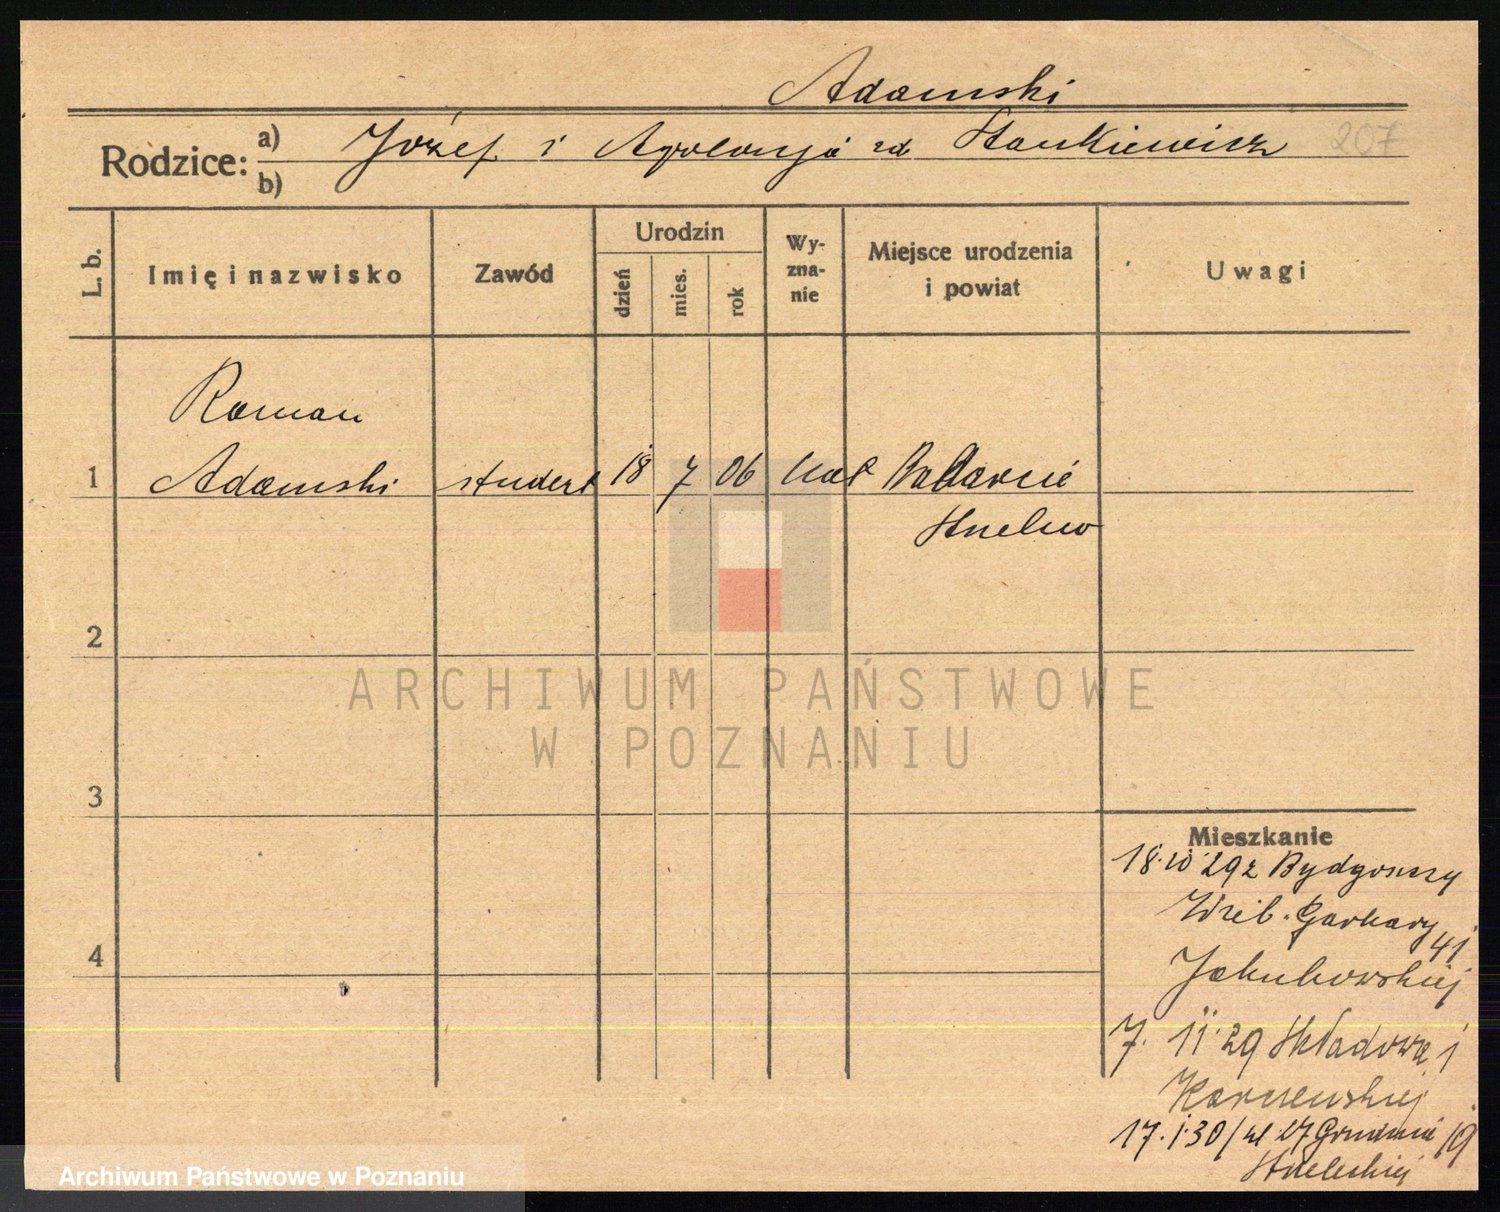 Adamski
Rodzice: a) Józef i Apolonja zd Stankiewicz 207
b)
L. b. Imię i nazwisko Zawód Urodzin dzień mies. rok Wy-zna-nie Miejsce urodzenia i powiat Uwagi
Roman
1 Adamski student 18 7 06 kat
Strzelno
2
ARCHIWUM PAŃSTWOWE
W POZNANIU
3
Mieszkanie
18.10 29 z Bydgoszczy
Garbary 41
Jakubowskiej
4
7. 11. 29 Składowa 1
17. 1. 30 / 27 Grudnia 19
Strzeleckiej
Archiwum Państwowe w Poznaniu